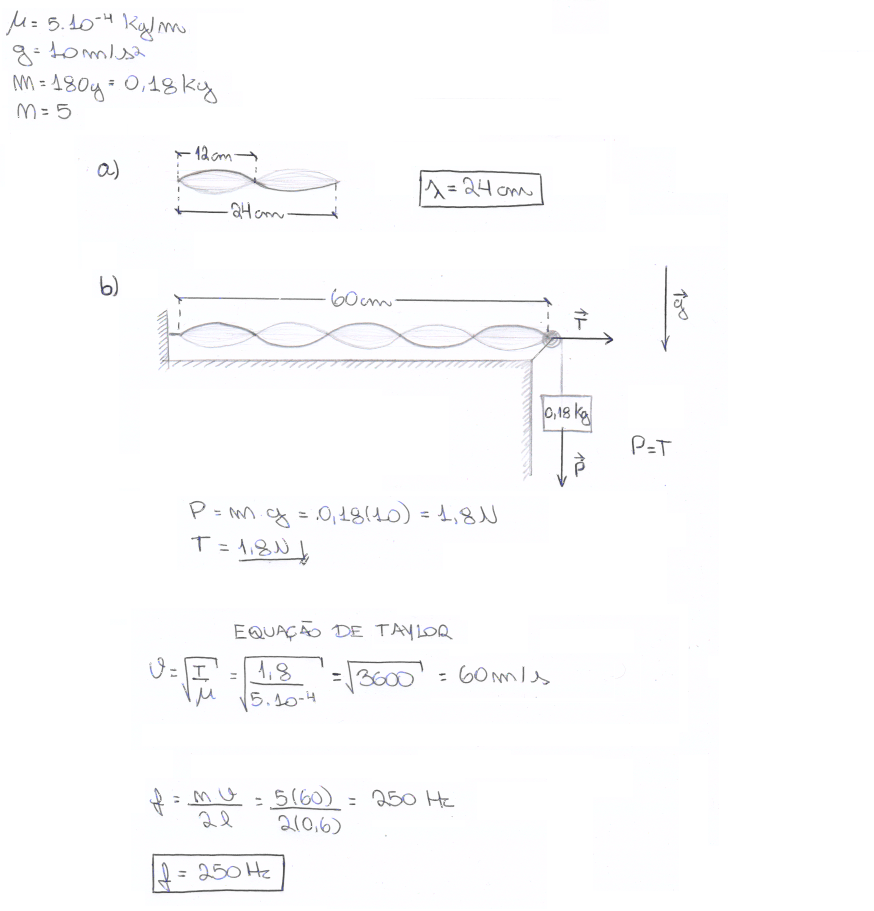 μ= 5.10⁻⁴ kg/m
g= 10 m/s²
m = 180g = 0,18 kg
n = 5
a)
12 cm
24 cm
λ = 24 cm
b)
60 cm
T⃗
g⃗
0,18 kg
P⃗
P=T
P = m.g = .0,18(10) = 1,8 N
T = 1,8 N
EQUAÇÃO DE TAYLOR
v = √T/μ = √1,8/5.10⁻⁴ = √3600 = 60 m/s
f = n v/2l = 5(60)/2(0,6) = 250 Hz
f = 250 Hz